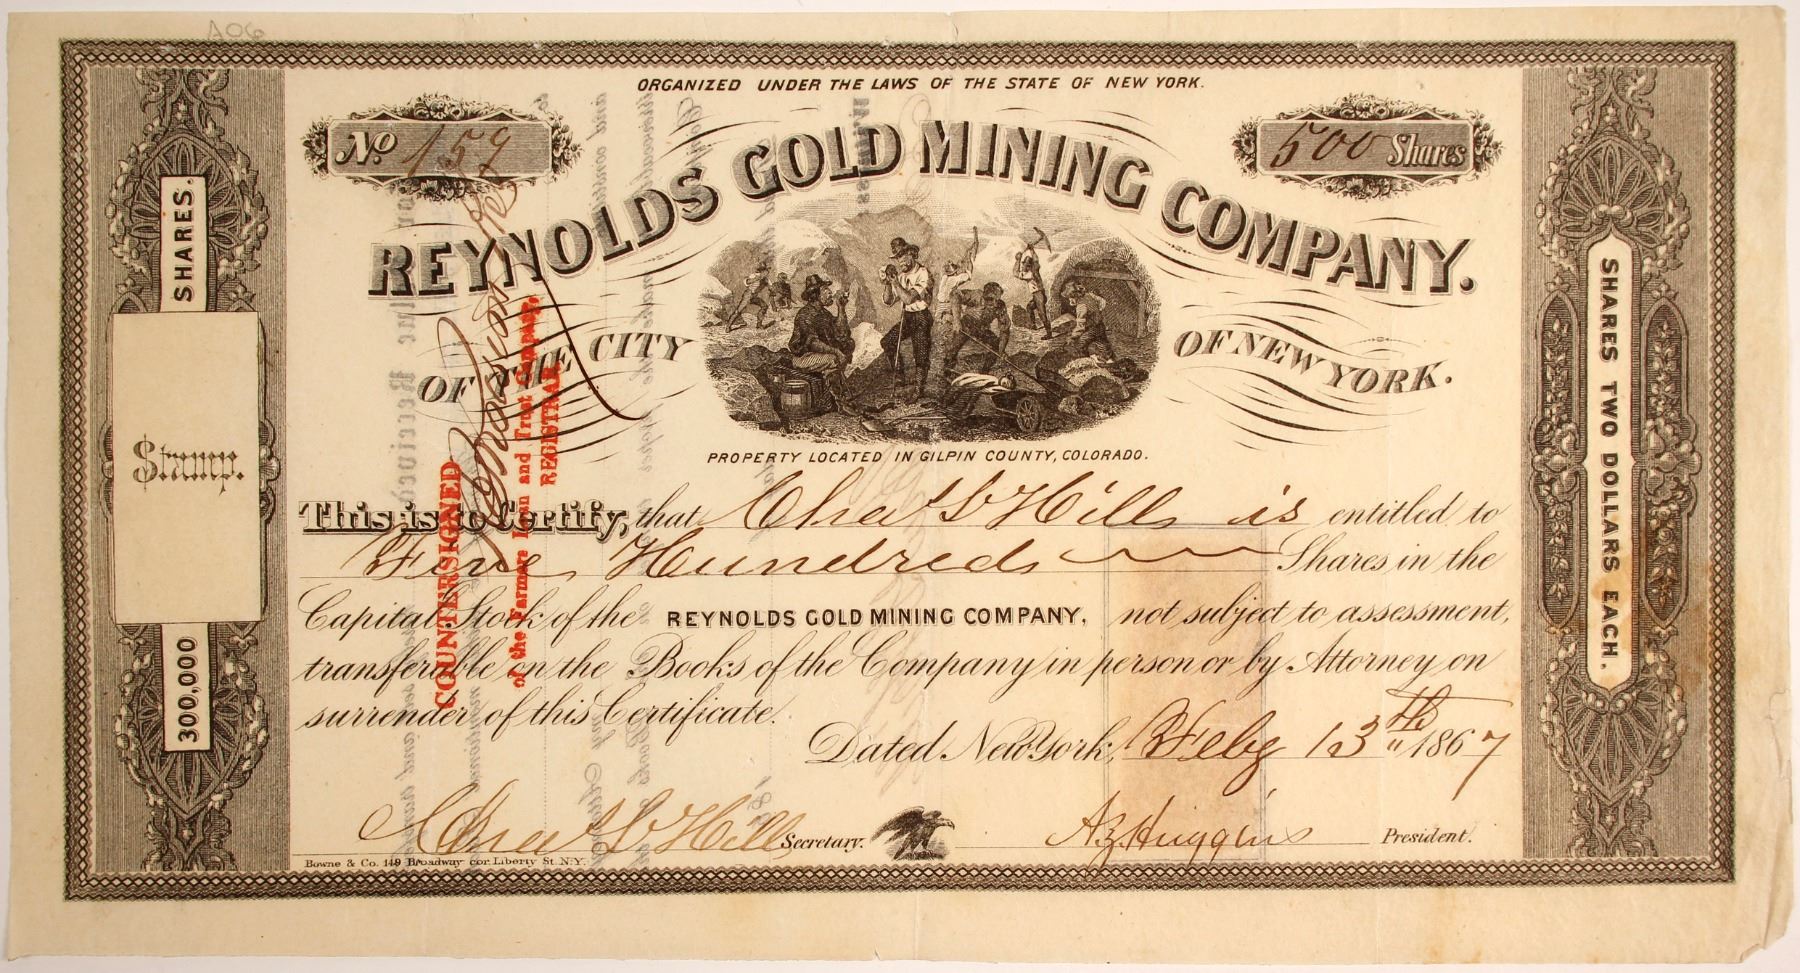 A06
ORGANIZED UNDER THE LAWS OF THE STATE OF NEW YORK.
No 159
500 Shares
REYNOLDS GOLD MINING COMPANY.
OF THE CITY OF NEW YORK.
PROPERTY LOCATED IN GILPIN COUNTY, COLORADO.
This is to Certify, that Chas S Hill is entitled to
Five Hundred Shares in the
Capital Stock of the REYNOLDS GOLD MINING COMPANY, not subject to assessment,
transferable on the Books of the Company in person or by Attorney on
surrender of this Certificate.
Dated New York, Feby 13th 1867
Chas S Hill Secretary.
A Z Huggins President.
Bowne & Co. 149 Broadway cor. Liberty St. N.Y.
SHARES.
Stamp.
300,000
COUNTERSIGNED
of the Farmers Loan and Trust Company,
REGISTRAR
SHARES TWO DOLLARS EACH.